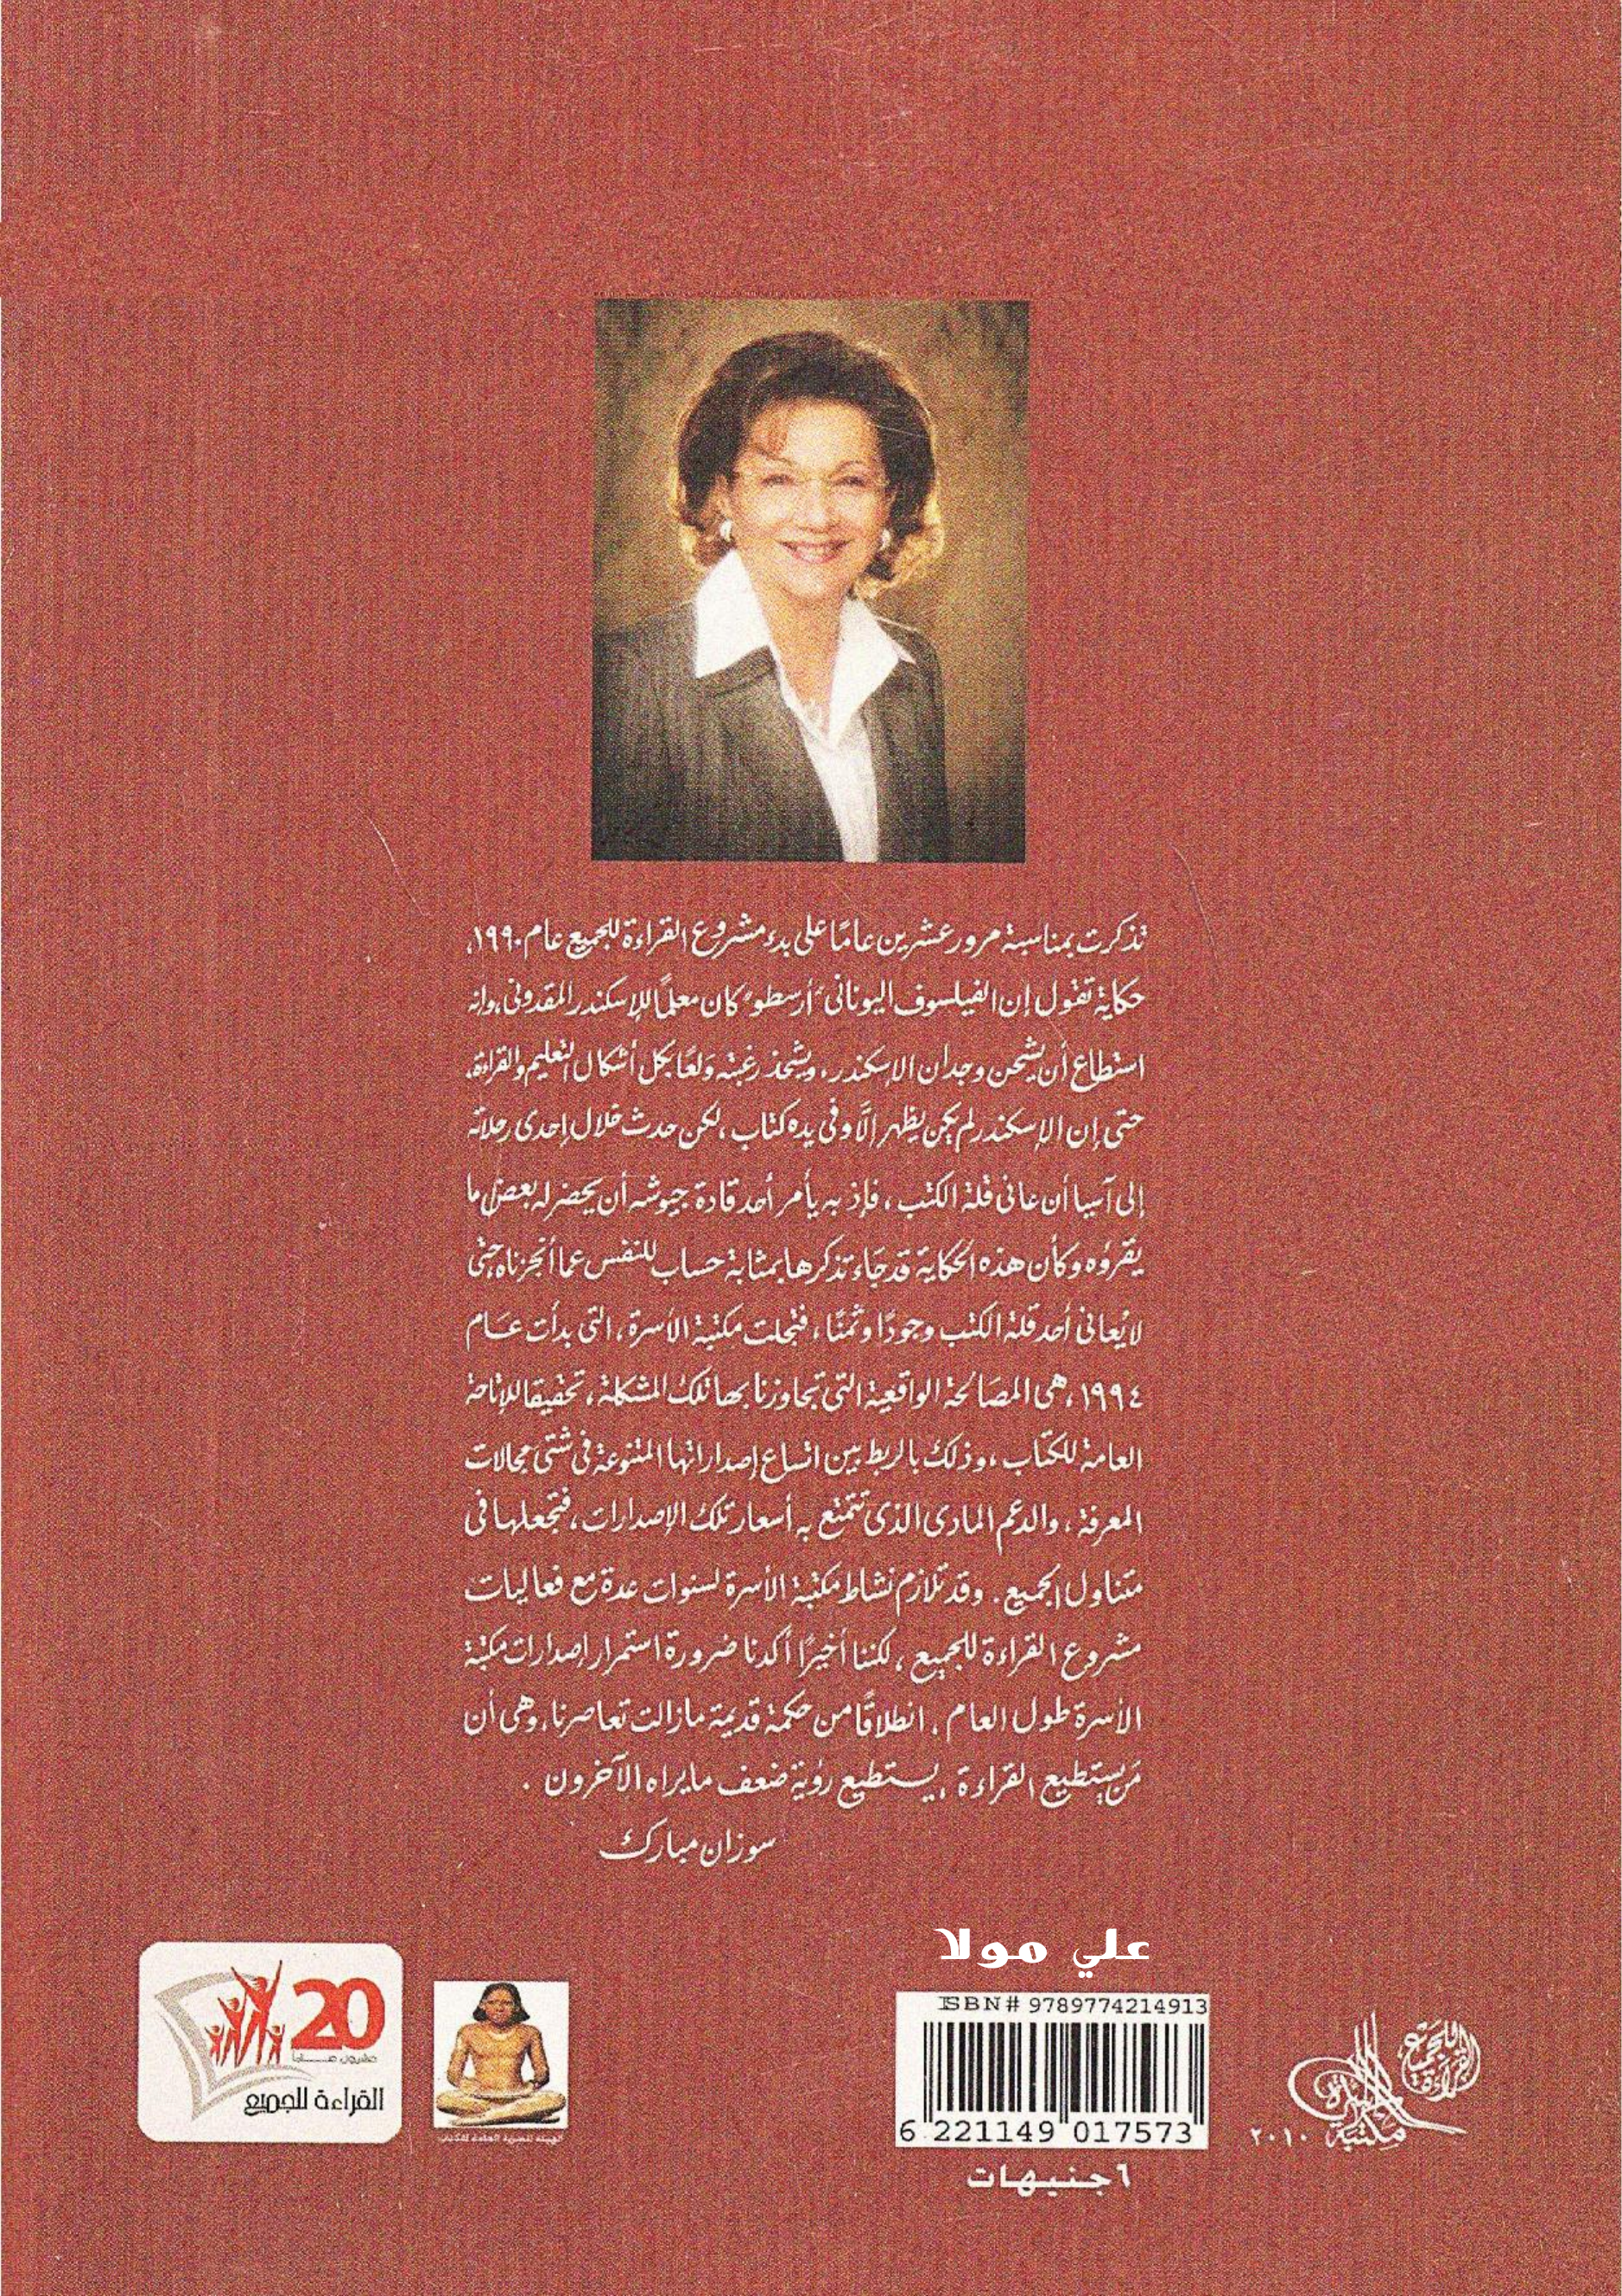 تذكرت بمناسبة مرور عشرين عامًا على بدء مشروع القراءة للجميع عام ١٩٩٠،
حكاية تقول إن الفيلسوف اليونانى "أرسطو" كان معلمًا للإسكندر المقدونى، وإنه
استطاع أن يشحن وجدان الإسكندر، ويشحذ رغبته ولعًا بكل أشكال التعليم والقراءة،
حتى إن الإسكندر لم يكن يظهر إلاَّ وفى يده كتاب، لكن حدث خلال إحدى رحلاته
إلى آسيا أن عانى قلة الكتب، فإذ به يأمر أحد قادة جيوشه أن يحضر له بعض ما
يقرؤه وكأن هذه الحكاية قد جاء تذكرها بمثابة حساب للنفس عما أنجزناه، حتى
لا يُعانى أحد قلة الكتب وجودًا وثمنًا، فتجلت مكتبة الأسرة، التى بدأت عام
١٩٩٤، هى المصالحة الواقعية التى تجاوزنا بها تلك المشكلة، تحقيقا للإتاحة
العامة للكتاب، وذلك بالربط بين اتساع إصداراتها المتنوعة فى شتى مجالات
المعرفة، والدعم المادى الذى تتمتع به أسعار تلك الإصدارات، فتجعلها فى
متناول الجميع. وقد تلازم نشاط مكتبة الأسرة لسنوات عدة مع فعاليات
مشروع القراءة للجميع، لكننا أخيرًا أكدنا ضرورة استمرار إصدارات مكتبة
الأسرة طول العام، انطلاقًا من حكمة قديمة مازالت تعاصرنا، وهى أن
مَن يستطيع القراءة، يستطيع رؤية ضعف ما يراه الآخرون.
سوزان مبارك
علي مولا
ISBN# 9789774214913
6 221149 017573
٦ جنيهات
القراءة للجميع
مكتبة الأسرة
٢٠١٠
الهيئة المصرية العامة للكتاب
20
عشرون عاما
القراءة للجميع